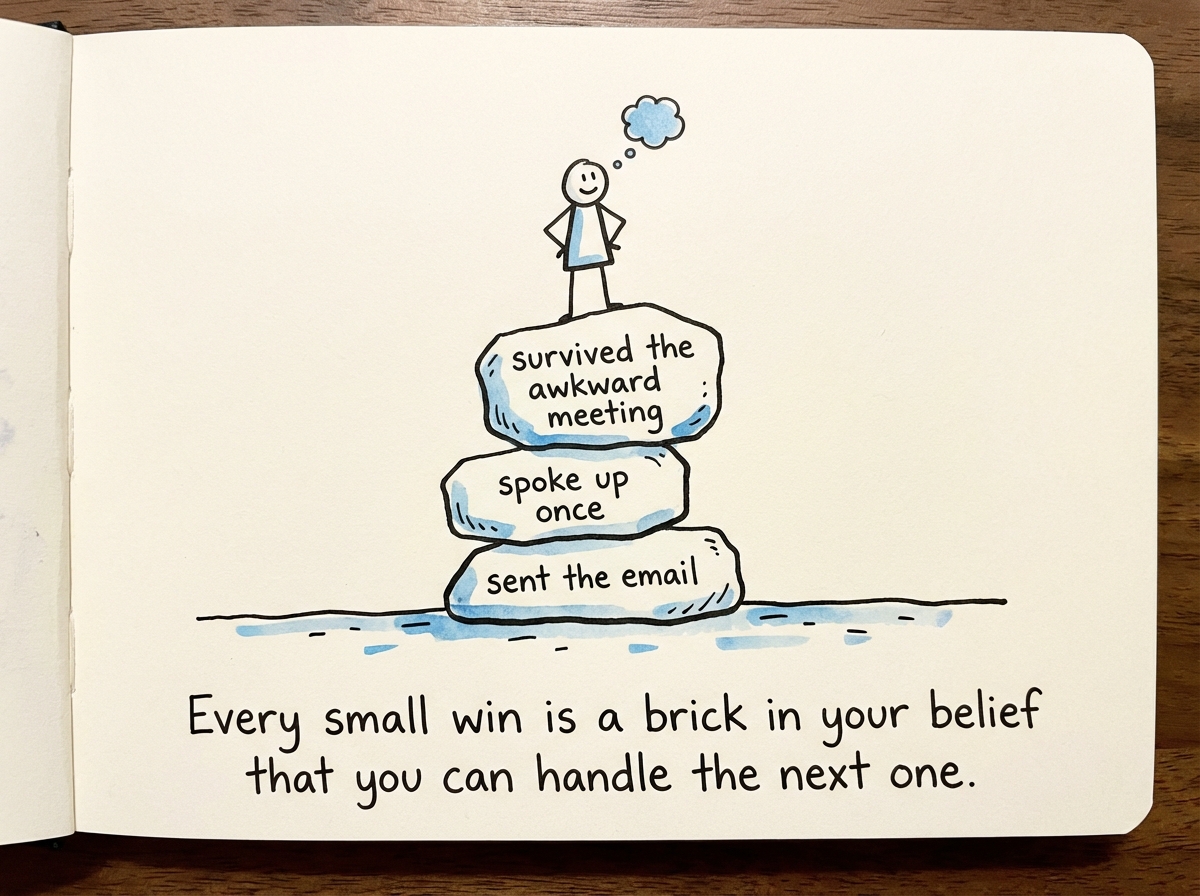 survived the
awkward
meeting
spoke up
once
sent the email
Every small win is a brick in your belief
that you can handle the next one.